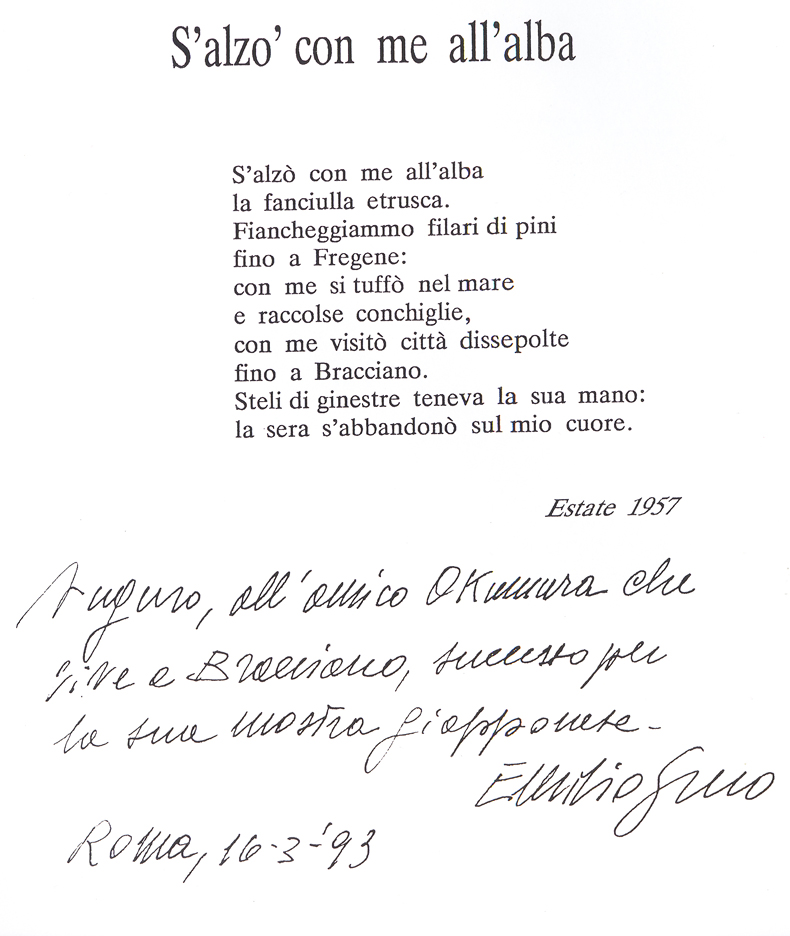 S'alzo' con me all'alba
S'alzò con me all'alba
la fanciulla etrusca.
Fiancheggiammo filari di pini
fino a Fregene:
con me si tuffò nel mare
e raccolse conchiglie,
con me visitò città dissepolte
fino a Bracciano.
Steli di ginestre teneva la sua mano:
la sera s'abbandonò sul mio cuore.
Estate 1957
Auguro, all'amico Okumura che
vive a Bracciano, successo per
la sua mostra giapponese -
Emilio Greco
Roma, 16-3-'93